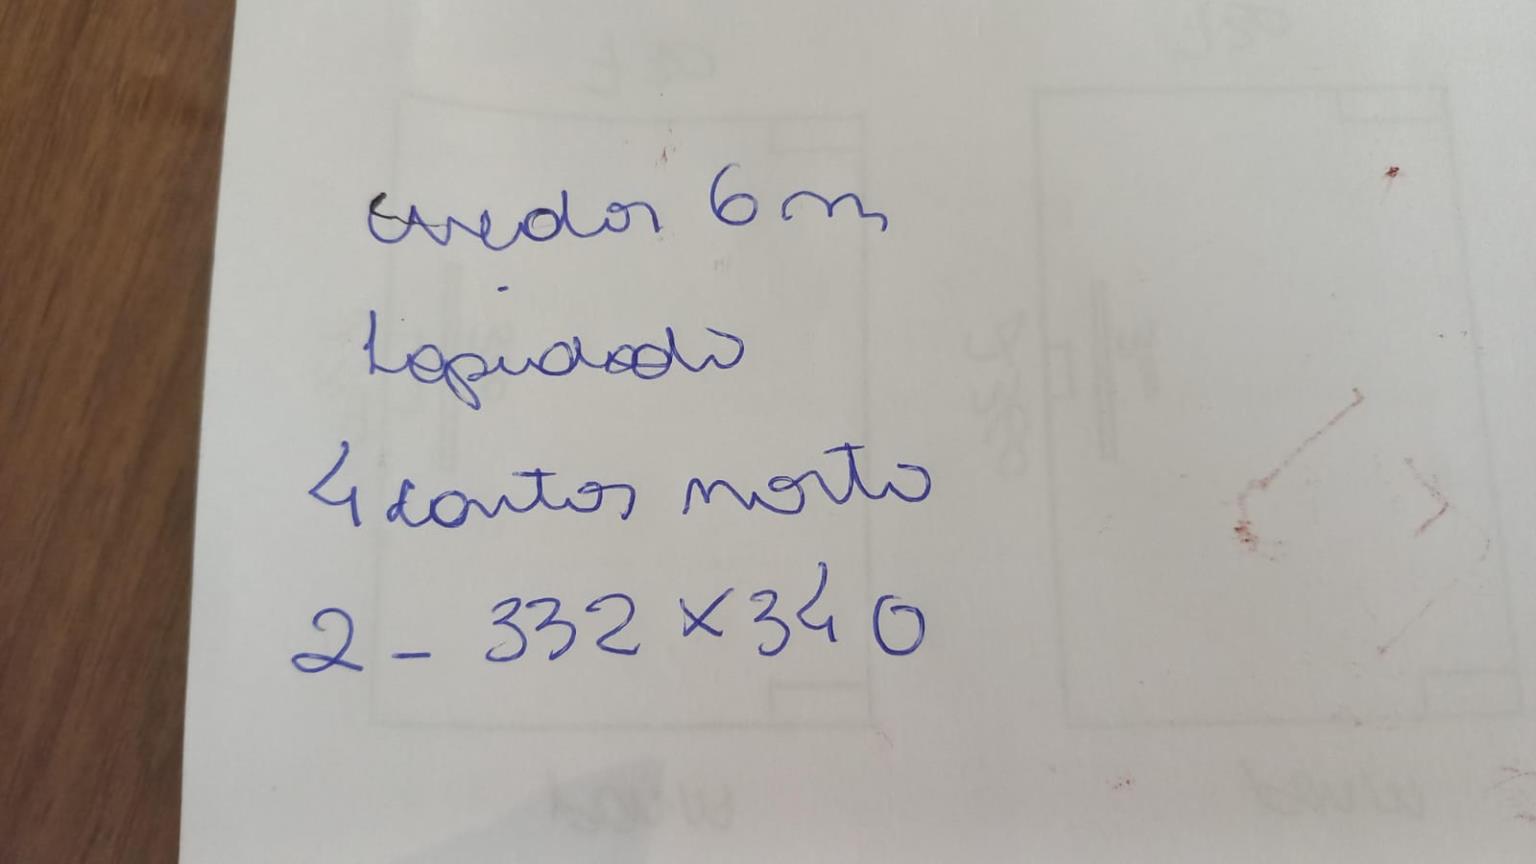 6 m
Lapidado
4 cantos morto
2 - 332 x 340